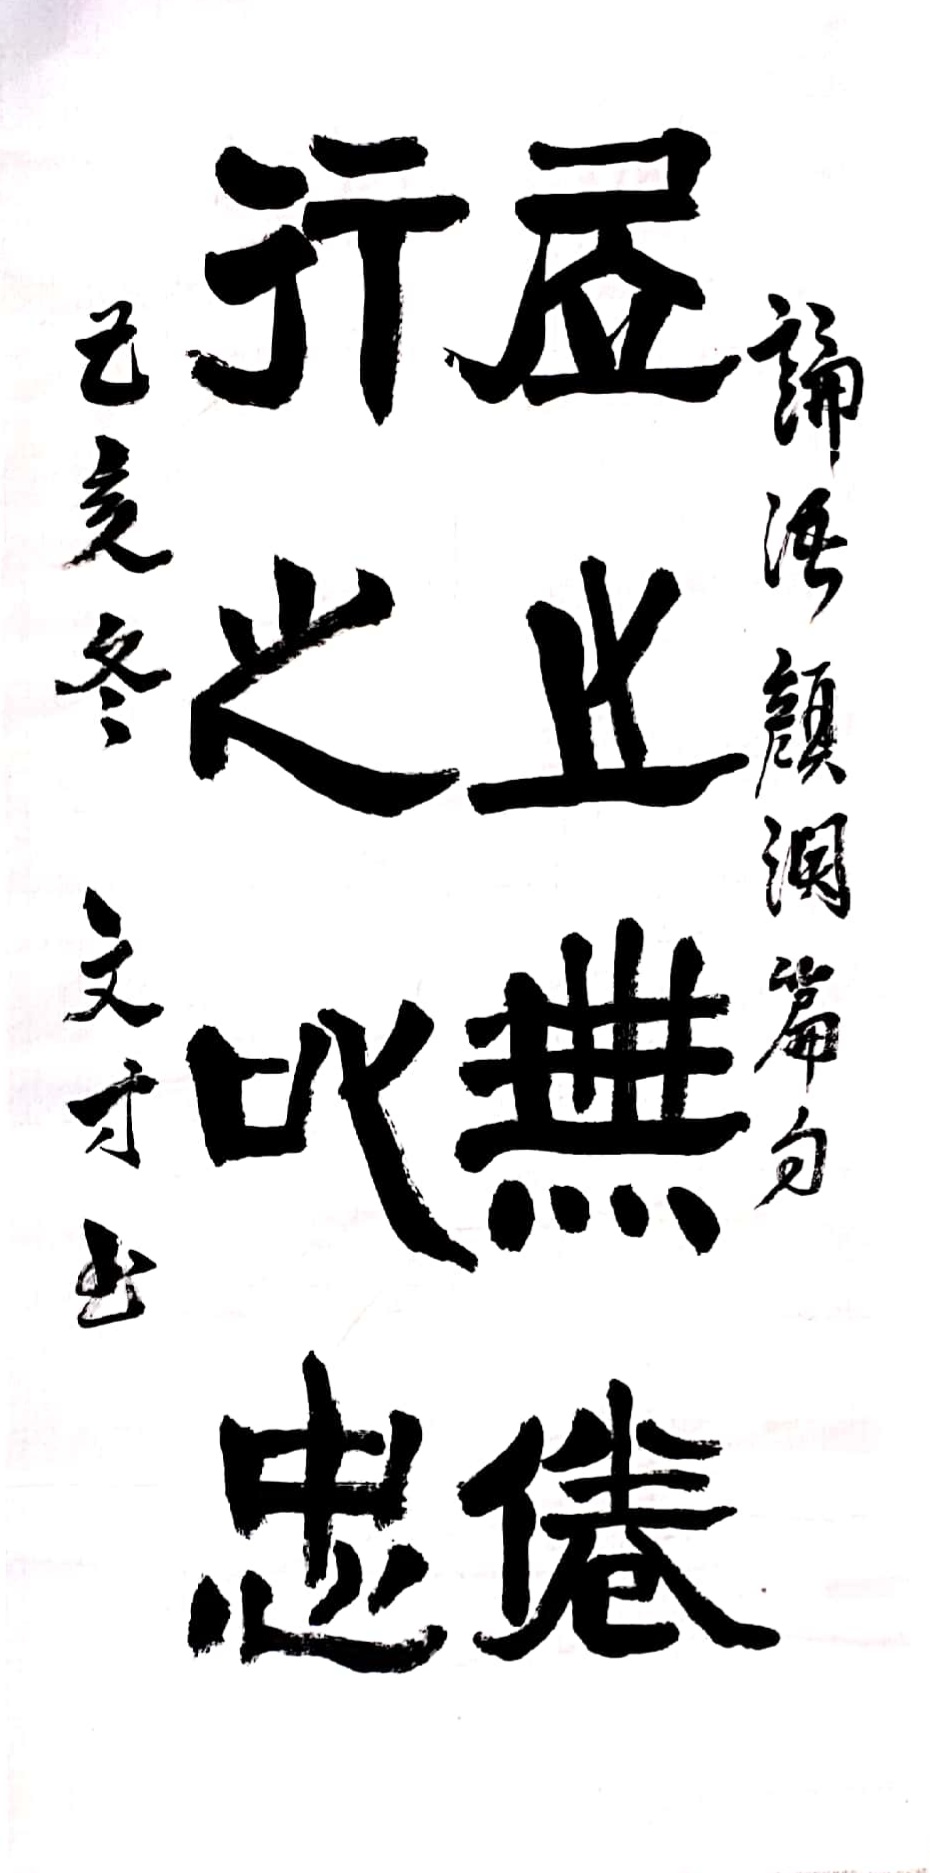 論語顏淵篇句
居之無倦
行之以忠
己亥冬 文才书